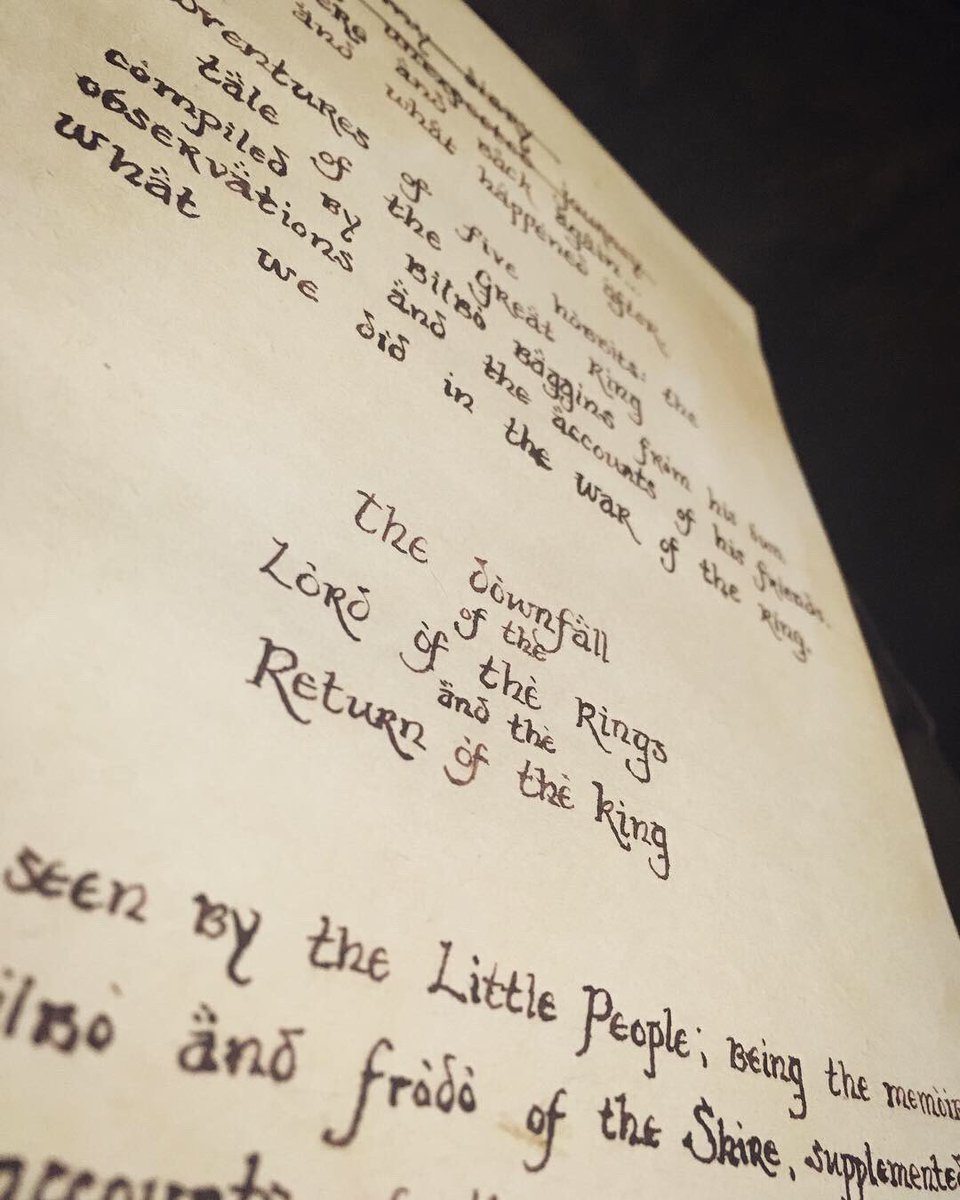 my diary
unexpected journey
and Back Again
and what happened after
of five hobbits: the
tale of the Great Ring
compiled by Bilbo Baggins from his own
observations and the accounts of his friends.
what we did in the war of the ring.
The downfall
of the
Lord of the Rings
and the
Return of the king
seen by the Little People; being the
and frodo of the Shire, supplemented
accounts